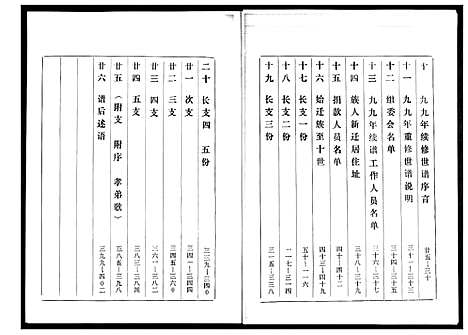 十 九九年续修世谱序言 廿五—三十
十一 九九年重修世谱说明
十二 组委会名单 三十三—三十四
十三 九九年续谱工作人员名单 三十六—三十七
十四 族人新迁居住址 三十八—三十九
十五 捐款人员名单 四十—四十二
十六 始迁族至十世 四十三—四十九
十七 长支一份 五十—
十八 长支二份
十九 长支三份 三一五—三三八
二十 长支四 五份 三三九—三四〇
廿一 次支 三四一—三四四
廿二 三支 三四五—三六〇
廿三 四支 三六一—
廿四 五支 三八三—三八四
廿五 （附支 附序 孝弟歌） 三八五—三九八
廿六 谱后述语 三九九—四〇二